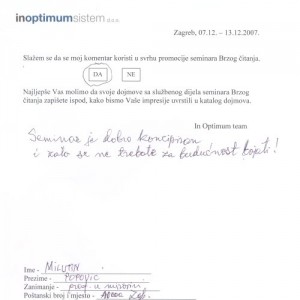 inoptimumsistem d.o.o.
Zagreb, 07.12. – 13.12.2007.
Slažem se da se moj komentar koristi u svrhu promocije seminara Brzog čitanja.
DA NE
Najljepše Vas molimo da svoje dojmove sa službenog dijela seminara Brzog
čitanja zapišete ispod, kako bismo Vaše impresije uvrstili u katalog dojmova.
In Optimum team
Seminar je dobro koncipiran
i zato se ne trebate za budućnost bojati!
Ime - MILUTIN
Prezime - POPOVIĆ
Zanimanje - prof. u mirovini
Poštanski broj i mjesto - Zgb